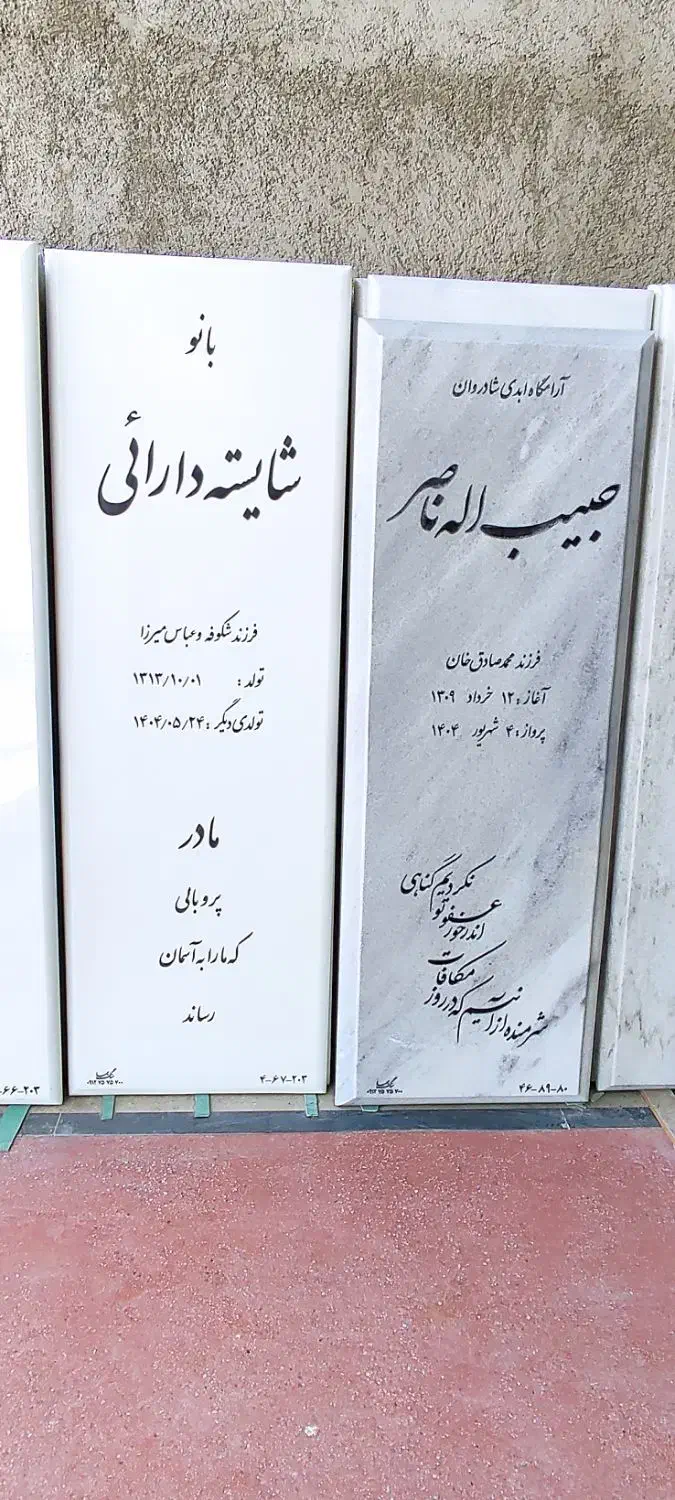 بانو
شایسته دارائی
فرزند شکوفه و عباس میرزا
تولد : ۱۳۱۳/۱۰/۰۱
تولدی دیگر : ۱۴۰۴/۰۵/۲۴
مادر
پر و بالی
که ما را به آسمان
رساند
۴-۶۷-۲۰۳
آرامگاه ابدی شادروان
حبیب اله ناصر
فرزند محمد صادق خان
آغاز : ۱۲ خرداد ۱۳۰۹
پرواز : ۴ شهریور ۱۴۰۴
نکردیم گناهی
اندر خور عفو تو
شرمنده از آنیم که در روز مکافات
۴۶-۸۹-۸۰
۶۶-۲۰۳